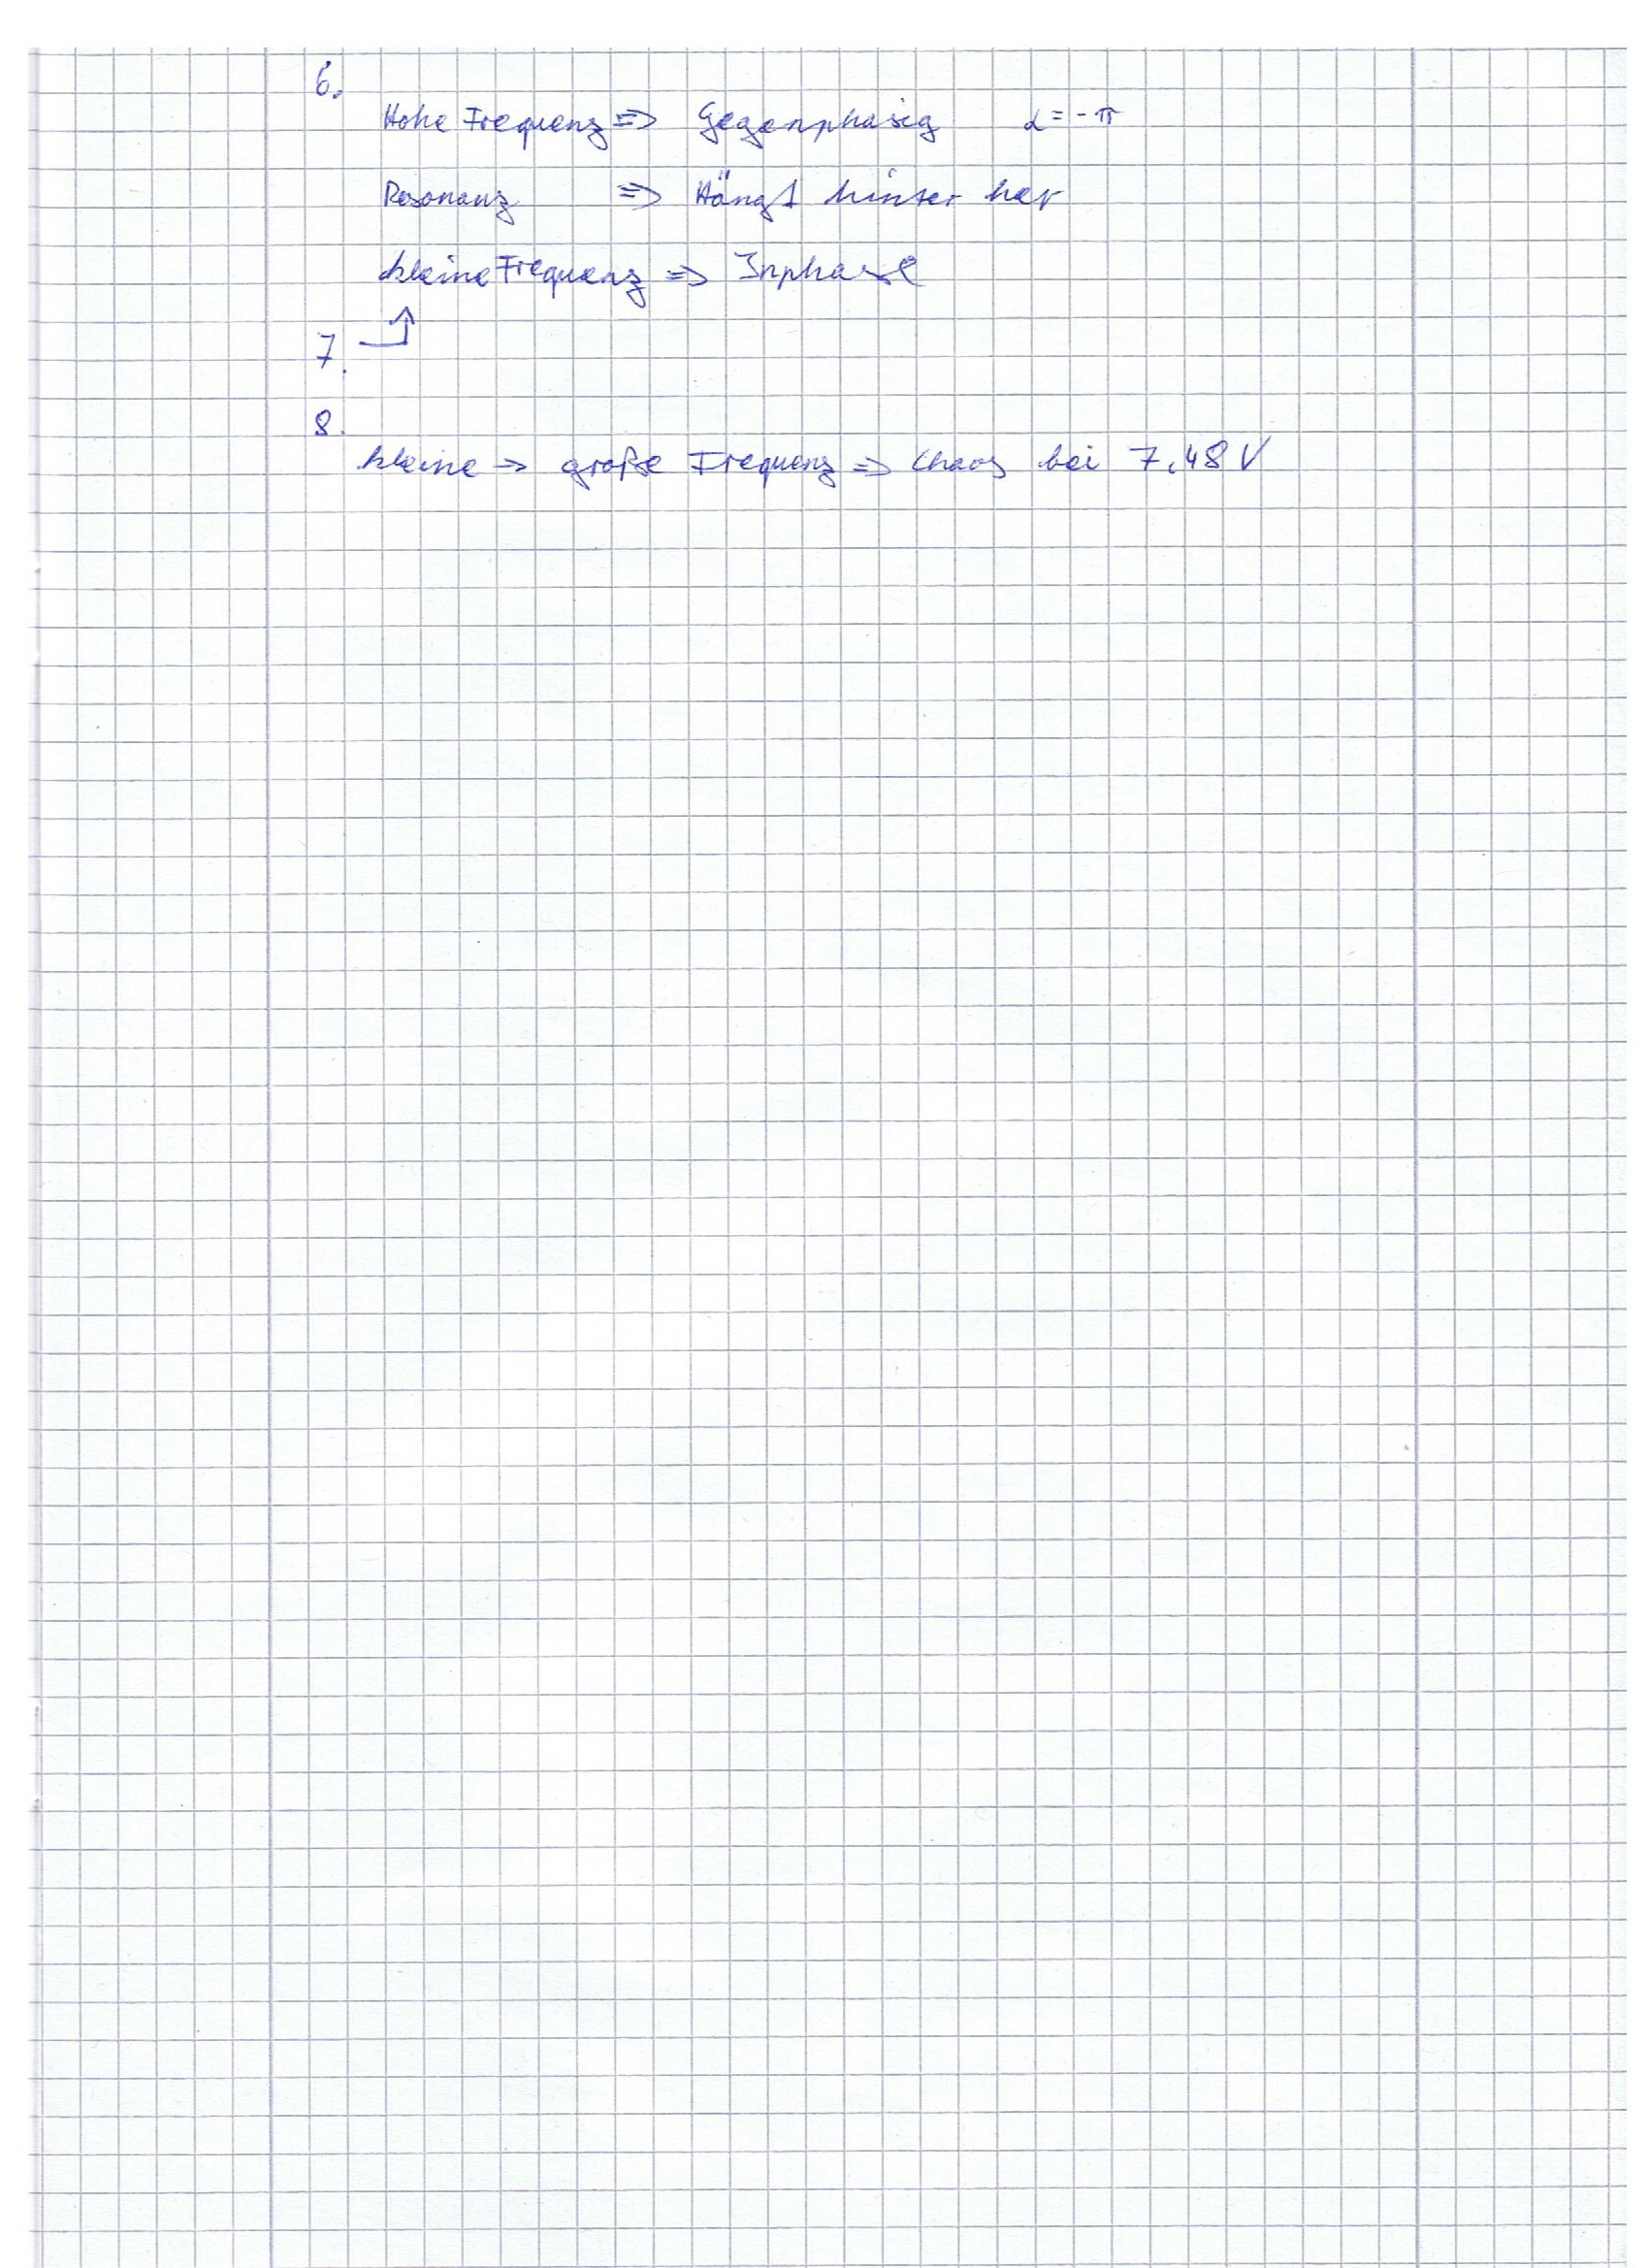 6.
Hohe Frequenz => Gegenphasig α = - π
Resonanz => Hängt hinter her
kleine Frequenz => Inphase
7.
8.
kleine -> große Frequenz => Chaos bei 7,48 V